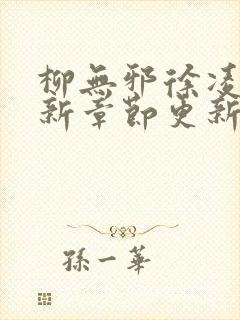 柳無邪徐凌
新章節更新
孫一華